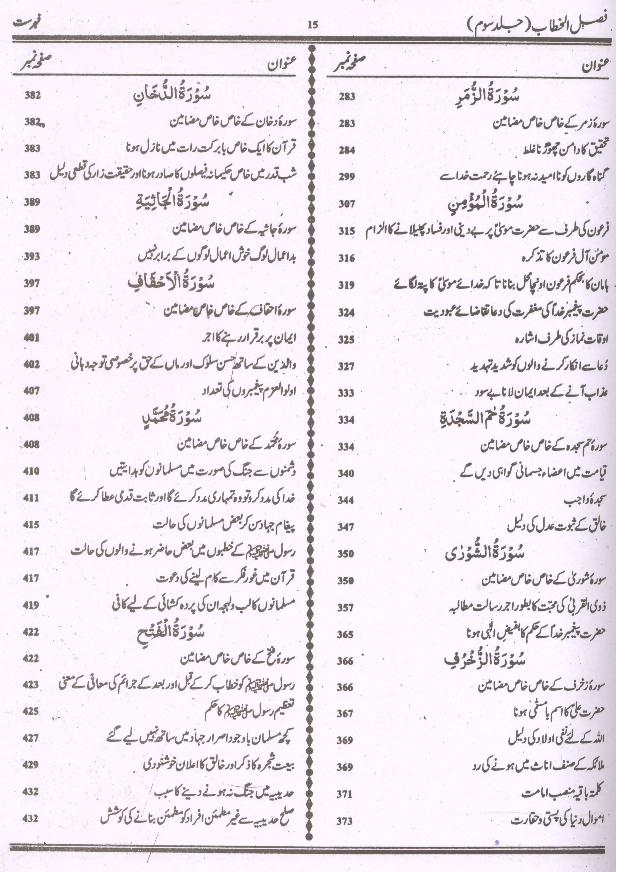 فصل الخطاب (جلد سوم) 15 فہرست
عنوان صفحہ نمبر
سُوْرَۃُ الزُّمَرِ 283
سورۂ زمر کے خاص خاص مضامین 283
تحقیق کا دامن چھوڑنا غلط 284
گناہ گاروں کو نا امید نہ ہونا چاہئے رحمت خدا سے 299
سُوْرَۃُ الْمُؤْمِنِ 307
فرعون کی طرف سے حضرت موسیٰؑ پر بے دینی اور فساد پھیلانے کا الزام 315
مومن آل فرعون کا تذکرہ 316
ہامان کا بحکم فرعون اونچا محل بنانا تاکہ خدائے موسیٰؑ کا پتہ لگائے 319
حضرت پیغمبر خداؐ کی مغفرت کی دعا تقاضائے عبودیت 324
اوقات نماز کی طرف اشارہ 325
دُعا سے انکار کرنے والوں کو شدید تہدید 327
عذاب آنے کے بعد ایمان لانا بے سود 333
سُوْرَۃُ حٰمٓ السَّجْدَۃِ 334
سورۂ حم سجدہ کے خاص خاص مضامین 334
قیامت میں اعضاء جسمانی گواہی دیں گے 340
سجدۂ واجب 344
خالق کے ثبوت عدل کی دلیل 347
سُوْرَۃُ الشُّوْرٰی 350
سورۂ شوریٰ کے خاص خاص مضامین 350
ذوی القربیٰ کی محبت کا بطور اجر رسالت مطالبہ 357
حضرت پیغمبر خداؐ کے حکم کا بفیض الٰہی ہونا 365
سُوْرَۃُ الزُّخْرُفِ 366
سورۂ زخرف کے خاص خاص مضامین 366
حضرت علیؑ کا اسم با مسمّٰی ہونا 367
اللہ کے لئے نفی اولاد کی دلیل 369
ملائکہ کے صنف اناث میں ہونے کی رد 369
کلمۂ باقیہ منصب امامت 371
اموال دنیا کی پستی و حقارت 373
عنوان صفحہ نمبر
سُوْرَۃُ الدُّخَانِ 382
سورۂ دخان کے خاص خاص مضامین 382
قرآن کا ایک خاص بابرکت رات میں نازل ہونا 383
شب قدر میں خاص حکیمانہ فیصلوں کا صادر ہونا اور حقیقت زار کی قطعی دلیل 383
سُوْرَۃُ الْجَاثِیَۃِ 389
سورۂ جاثیہ کے خاص خاص مضامین 389
بد اعمال لوگ خوش اعمال لوگوں کے برابر نہیں 393
سُوْرَۃُ الْاَحْقَافِ 397
سورۂ احقاف کے خاص خاص مضامین 397
ایمان پر برقرار رہنے کا اجر 401
والدین کے ساتھ حسن سلوک اور ماں کے حق پر خصوصی توجہ دہانی 402
اولو العزم پیغمبروں کی تعداد 407
سُوْرَۃُ مُحَمَّدٍ 408
سورۂ محمدؐ کے خاص خاص مضامین 408
دشمنوں سے جنگ کی صورت میں مسلمانوں کو ہدایتیں 410
خدا کی مدد کرو تو وہ تمہاری مدد کرے گا اور ثابت قدمی عطا کرے گا 411
پیغام جہاد سن کر بعض مسلمانوں کی حالت 415
رسول ﷺ کے خطبوں میں بعض حاضر ہونے والوں کی حالت 417
قرآن میں غور و فکر سے کام لینے کی دعوت 417
مسلمانوں کا لب و لہجہ ان کی پردہ کشائی کے لیے کافی 419
سُوْرَۃُ الْفَتْحِ 422
سورۂ فتح کے خاص خاص مضامین 422
رسول ﷺ کو خطاب کر کے قبل اور بعد کے جرائم کی معافی کے معنی 423
تعظیم رسول ﷺ کا حکم 425
کچھ مسلمان باوجود اصرار جہاد میں ساتھ نہیں لیے گئے 427
بیعت شجرہ کا ذکر اور خالق کا اعلان خوشنودی 429
حدیبیہ میں جنگ نہ ہونے دینے کا سبب 432
صلح حدیبیہ سے غیر مطمئن افراد کو مطمئن بنانے کی کوشش 432